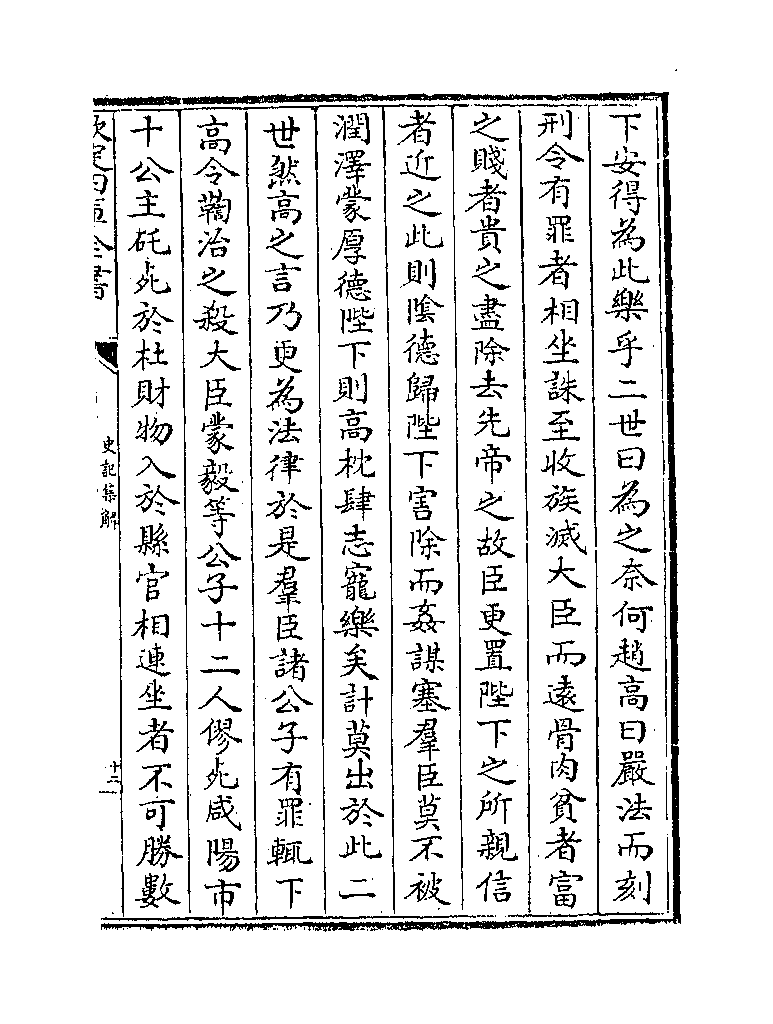 下安得為此樂乎二世曰為之奈何趙高曰嚴法而刻
刑令有罪者相坐誅至收族滅大臣而遠骨肉貧者富
之賤者貴之盡除去先帝之故臣更置陛下之所親信
者近之此則隂德歸陛下害除而姦謀塞羣臣莫不被
潤澤蒙厚德陛下則高枕肆志寵樂矣計莫出於此二
世然高之言乃更為法律於是羣臣諸公子有罪輒下
高令鞫治之殺大臣蒙毅等公子十二人僇死咸陽市
十公主矺死於杜財物入於縣官相連坐者不可勝數
欽定四庫全書
史記集解